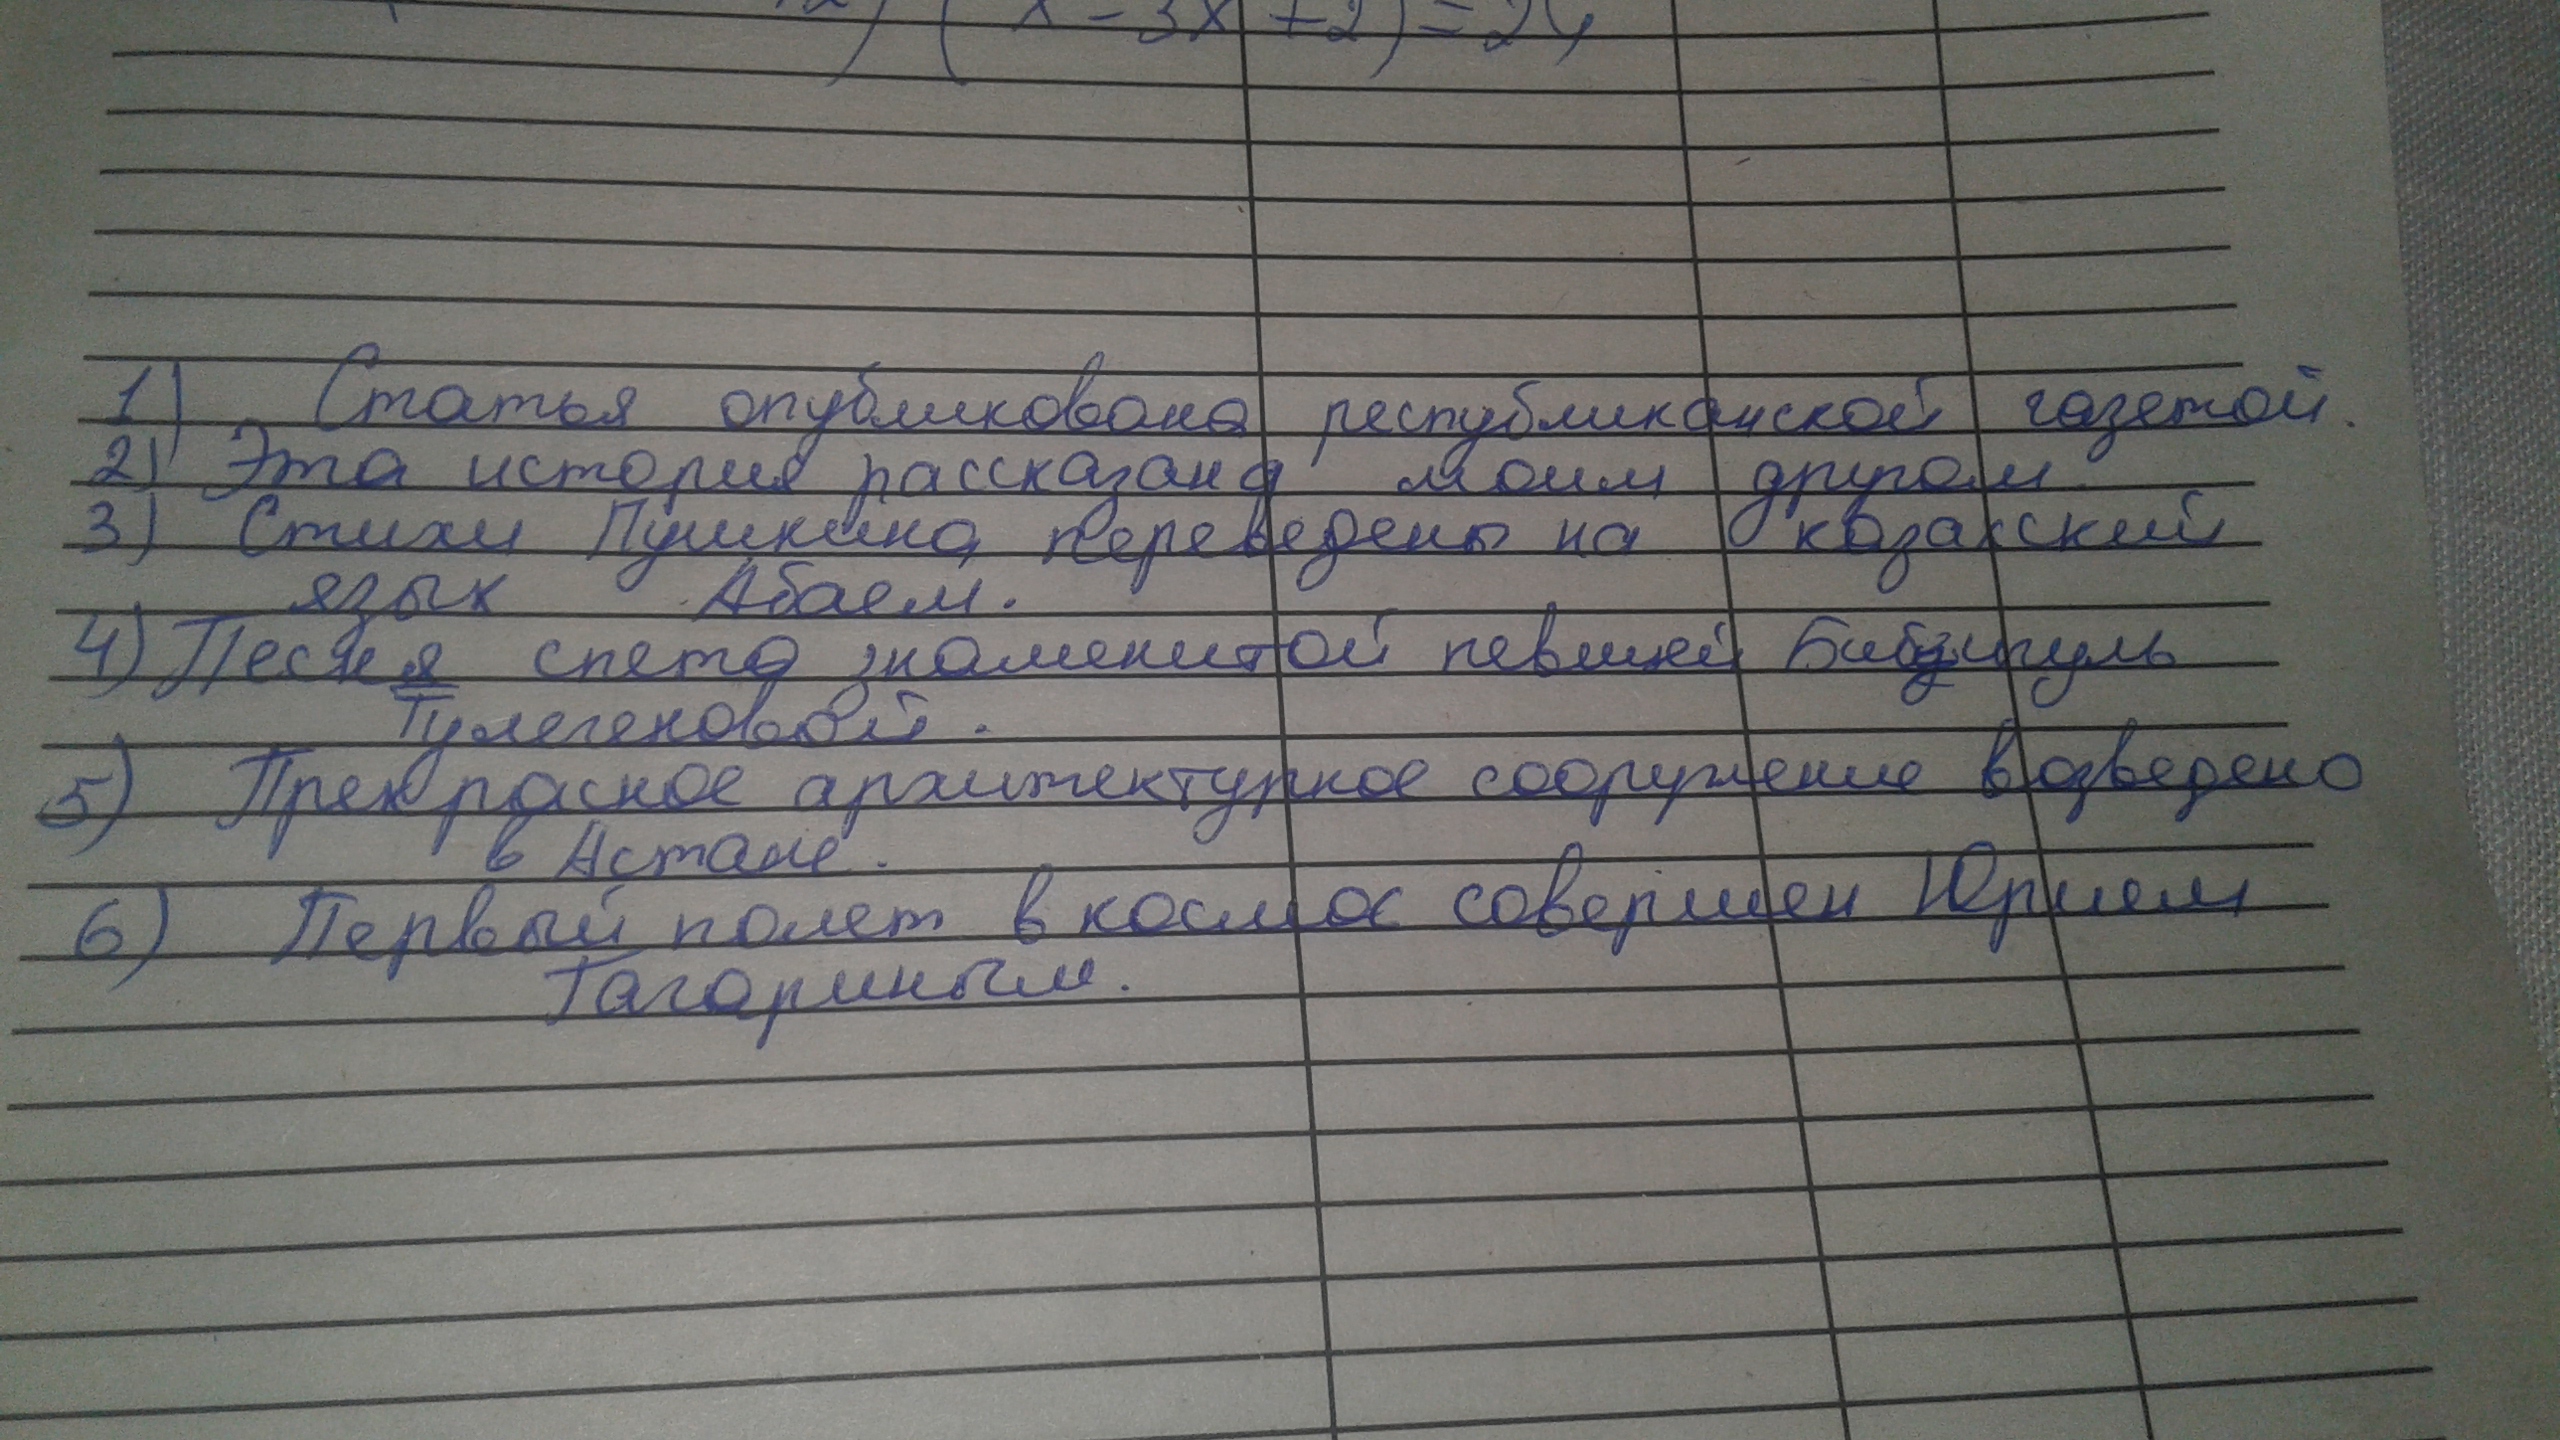 (x - 3x + 2) = 24
1) Статья опубликована республиканской газетой.
2) Эта история рассказана моим другом
3) Стихи Пушкина переведены на казахский
язык Абаем.
4) Песня спета знаменитой певицей Бибигуль
Тулегеновой.
5) Прекрасное архитектурное сооружение возведено
в Астане.
6) Первый полет в космос совершен Юрием
Гагариным.